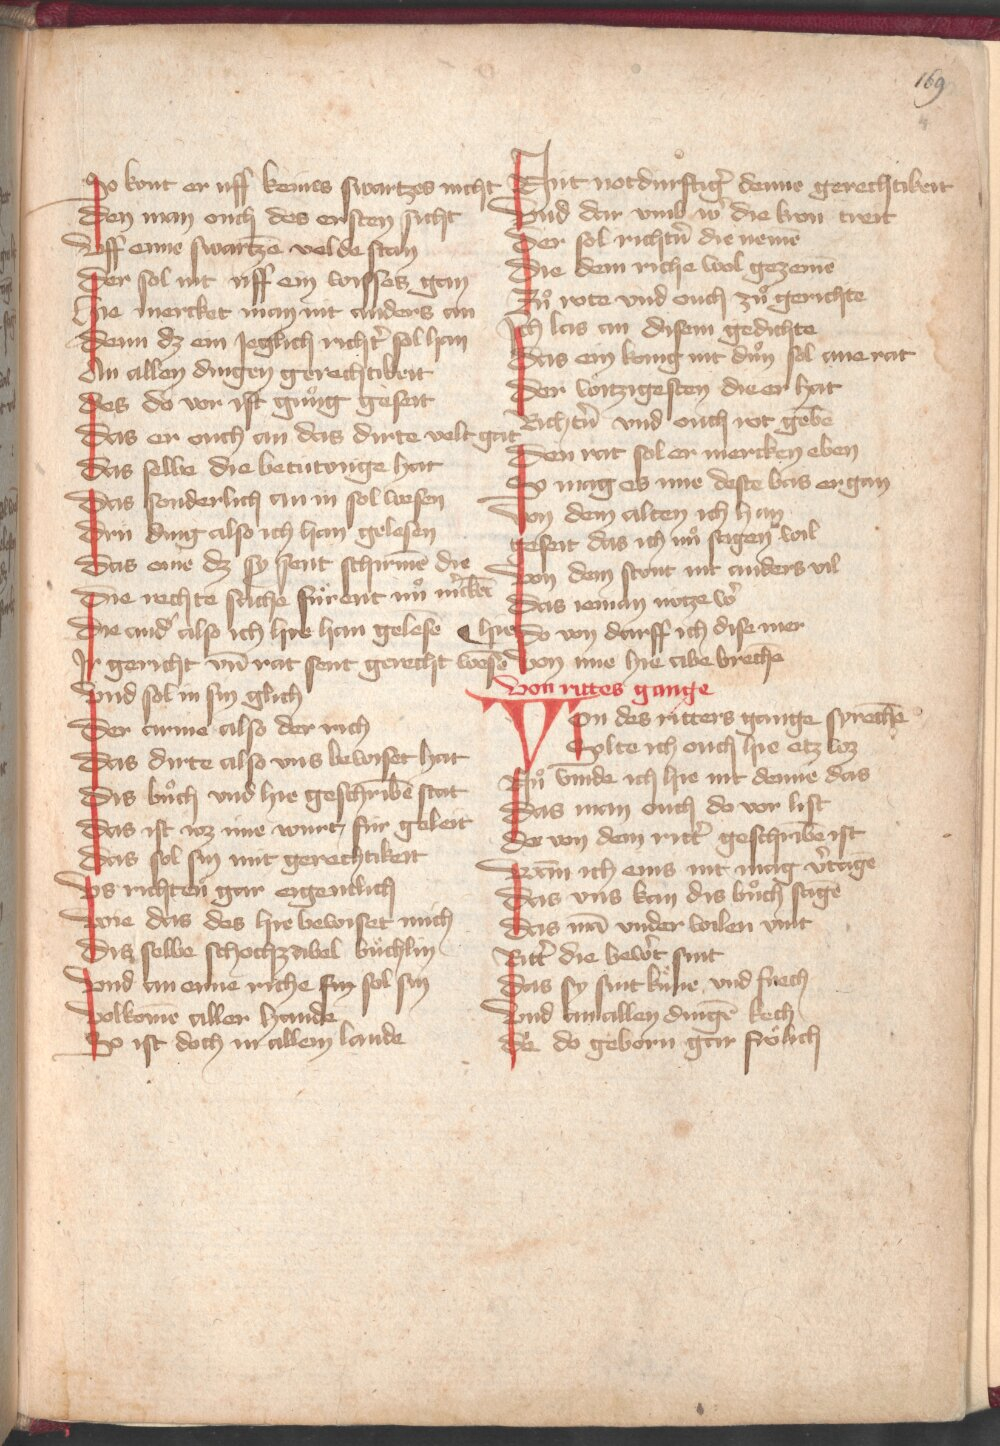 169
So kont er uff keines swartzes nicht
Den man ouch des ersten sicht
Uff eime swartze velde stan
Der sol nit uff ein wisses gan
Hie mercket man nit anders an
Denn dz ein Jeglich richt̾ sol han
An allen dingen gerechtikeit
Des do vor ist gnuͦg geseit
Das er ouch an das dirte velt gat
Das selbe die betutunge hat
Das sonderlich an in sol wesen
Drii ding also ich han gelesen
Das eine dz sy sent schirmē die
Die rechte sache fuͤrent
Die and̾ also ich hie han gelesē hie
Ir gericht vn̄ rat sent gerecht wesē
Und sol in sin glich
Der arme also der rich
Das dirte also uns bewiset hat
Dis buͦch und hie geschribē stat
Das ist wz ime wurt für geleit
Das sol sin mit gerechtikeit
Us richten gar eigentlich
Wie das des hie bewiset mich
Dis selbe schochzabel büchlin
Und an eime riche sin sol sin
Volkomē aller hande
So ist doch in allem lande
Nüt notdurftig̾ denne gerechtikeit
Und dar umb w̾ die kron treit
Der sol richt̾n die nemē
Die dem riche wol gezemē
Zuͦ rote und ouch zuͦ gerichte
Ich las an disem gedichte
Das ein konig nit duͦn sol ane rat
Der witzigesten die er hat
Richt̾n und ouch rot gebē
Den rat sol er mercken eben
So mag es ime deste bas ergan
Von dem alten ich han
geseit das ich nuͦ sagen wil
Von dem stont nit anders vil
Das ieman notze w̾
Do von darff ich dise mer
Von ime hie abe brechē
Von rittes gange
VOn des ritters gange sprechē
Solte ich ouch hie etz wz
Nuͦ vinde ich hie nit denne das
Das man ouch do vor list
Do von dem ritt̾ geschribē ist
Wān ich eins nit mag v̾tagē
Das uns kan dis buͦch sagē
Das mā under wilen vint
Ritt̾ die bew̾t sint
Das sy sint küne und frech
Und an allen dingē kech
do geborn gar frölich